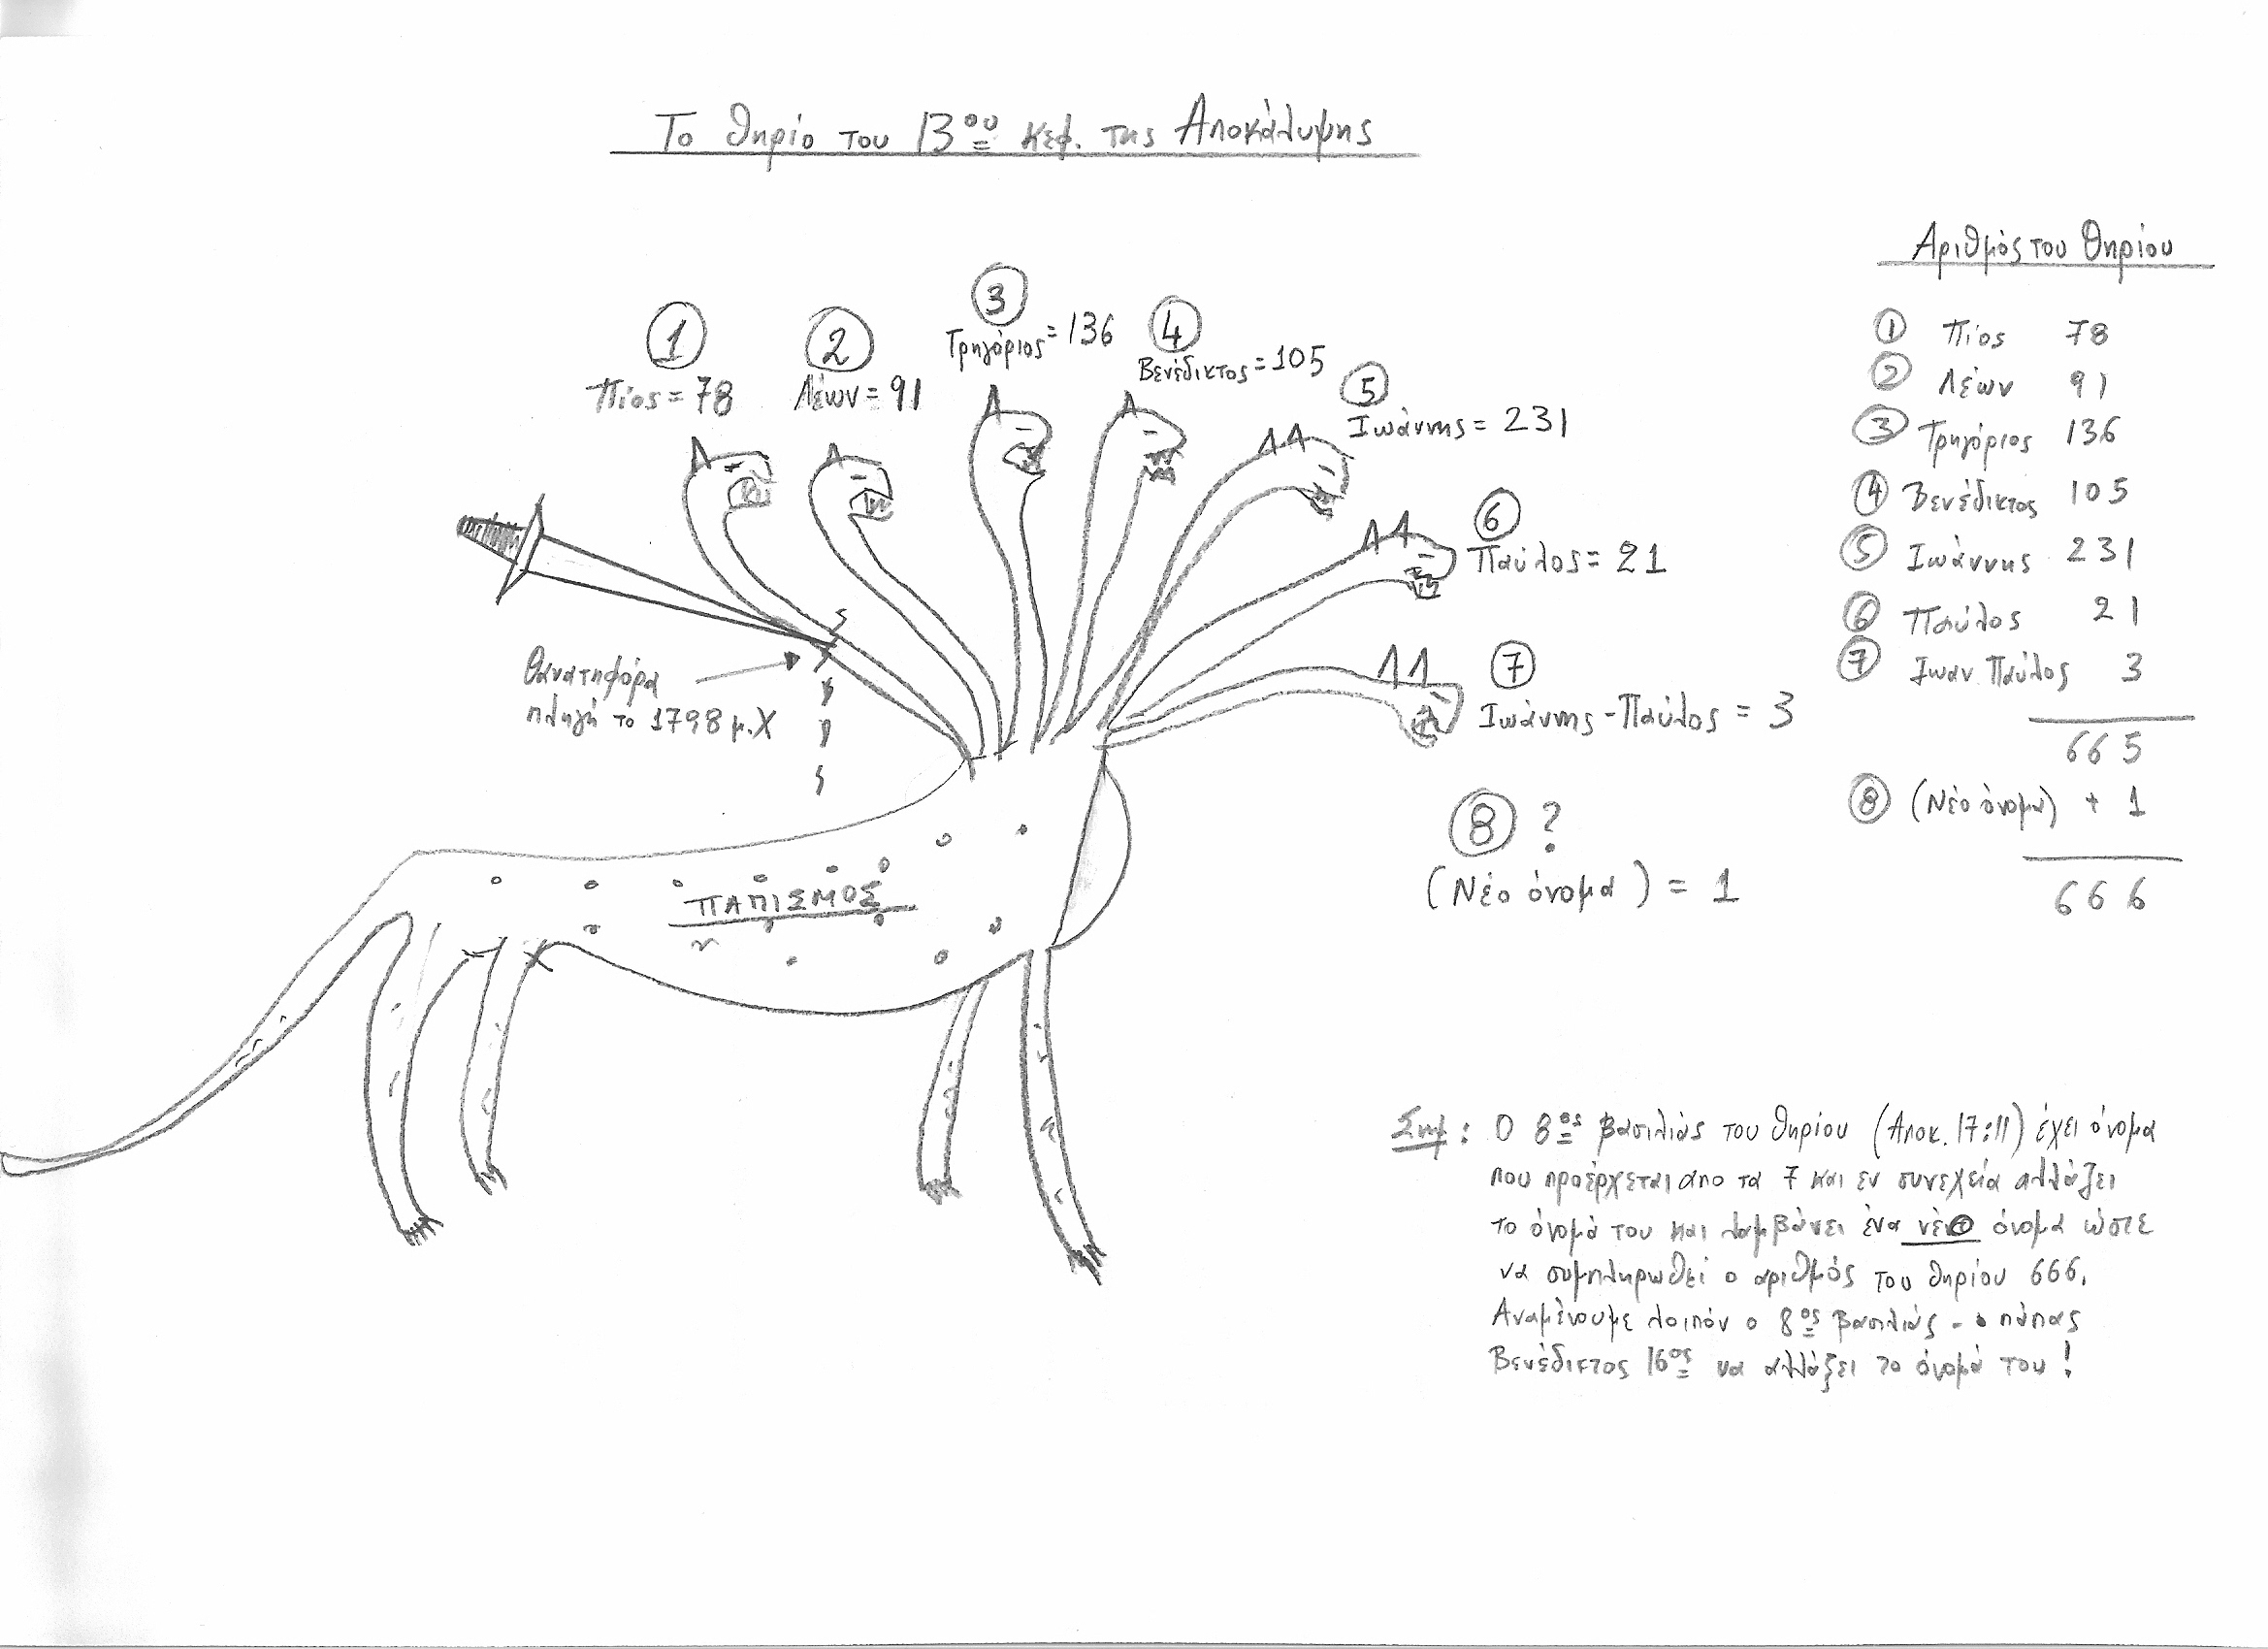 Το θηρίο του 13ου κεφ. της Αποκάλυψης
Αριθμός του θηρίου
1
Πίος = 78
2
Λέων = 91
3
Γρηγόριος = 136
4
Βενέδικτος = 105
5
Ιωάννης = 231
6
Παύλος = 21
7
Ιωάννης - Παύλος = 3
8 ?
(Νέο όνομα) = 1
θανατηφόρα
πληγή το 1798 μ.Χ
ΠΑΠΙΣΜΟΣ
1 Πίος 78
2 Λέων 91
3 Γρηγόριος 136
4 Βενέδικτος 105
5 Ιωάννης 231
6 Παύλος 21
7 Ιωαν Παύλος 3
665
8 (Νέο όνομα) + 1
666
Σημ: Ο 8ος βασιλιάς του θηρίου (Αποκ. 17:11) έχει όνομα
που προέρχεται απο τα 7 και εν συνεχεία αλλάζει
το όνομά του και λαμβάνει ένα νέο όνομα ώστε
να συμπληρωθεί ο αριθμός του θηρίου 666.
Αναμένουμε λοιπόν ο 8ος βασιλιάς - ο πάπας
Βενέδικτος 16ος να αλλάξει το όνομά του!